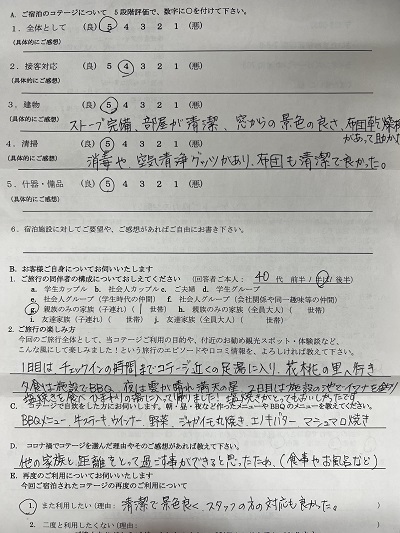 A. ご宿泊のコテージについて 5段階評価で、数字に○を付けて下さい。
1. 全体として (良) 5 4 3 2 1 (悪)
(具体的にご感想)
2. 接客対応 (良) 5 4 3 2 1 (悪)
(具体的にご感想)
3. 建物 (良) 5 4 3 2 1 (悪)
(具体的にご感想) ストーブ完備、部屋が清潔、窓からの景色の良さ、布団乾燥機があって助かった
4. 清掃 (良) 5 4 3 2 1 (悪)
(具体的にご感想) 消毒や、空気清浄グッツがあり、布団も清潔で良かった。
5. 什器・備品 (良) 5 4 3 2 1 (悪)
(具体的にご感想)
6. 宿泊施設に対してご要望や、ご感想があればご自由にお書き下さい。
B. お客様ご自身についてお伺いいたします
1. ご旅行の同伴者の構成についておしえてください (回答者ご本人: 40 代 前半 / 半ば / 後半)
a. 学生カップル b. 社会人カップル c. ご夫婦 d. 学生グループ
e. 社会人グループ (学生時代の仲間) f. 社会人グループ (会社関係や同一趣味等の仲間)
g. 親族のみの家族 (子連れ) ( 世帯) h. 親族のみの家族 (全員大人) ( 世帯)
i. 友達家族 (子連れ) ( 世帯) j. 友達家族 (全員大人) ( 世帯)
2. ご旅行の楽しみ方
今回のご旅行全体として、当コテージご利用の目的や、付近のお勧め観光スポット・体験談など、
こんな風にして楽しみました!という旅行のエピソードや口コミ情報を、よろしければ教えて下さい。
1日目はチェックインの時間までコテージ近くの足湯に入り、花桃の里へ行き
夕食は施設でBBQ、夜は雲が晴れ満天の星、2日目は施設の池でイワナを釣り
塩焼きを食べ、ひまわりの湯に入って帰りました!塩焼きがとてもおいしかったです
C. コテージで自炊をした方にお伺いします。朝・昼・夜など作ったメニューやBBQのメニューを教えてください。
BBQメニュー 牛ステーキ ウインナー 野菜 ジャガイモ丸焼き エノキバター マシュマロ焼き
D. コロナ禍でコテージを選んだ理由やそのご感想があれば教えて下さい。
他の家族と距離をとって過ごす事ができると思ったため、(食事やお風呂など)
E. 再度のご利用についてお伺いいたします
今回ご宿泊されたコテージの再度のご利用について
1. また利用したい (理由: 清潔で景色良く、スタッフの方の対応も良かった。 )
2. 二度と利用したくない (理由: )